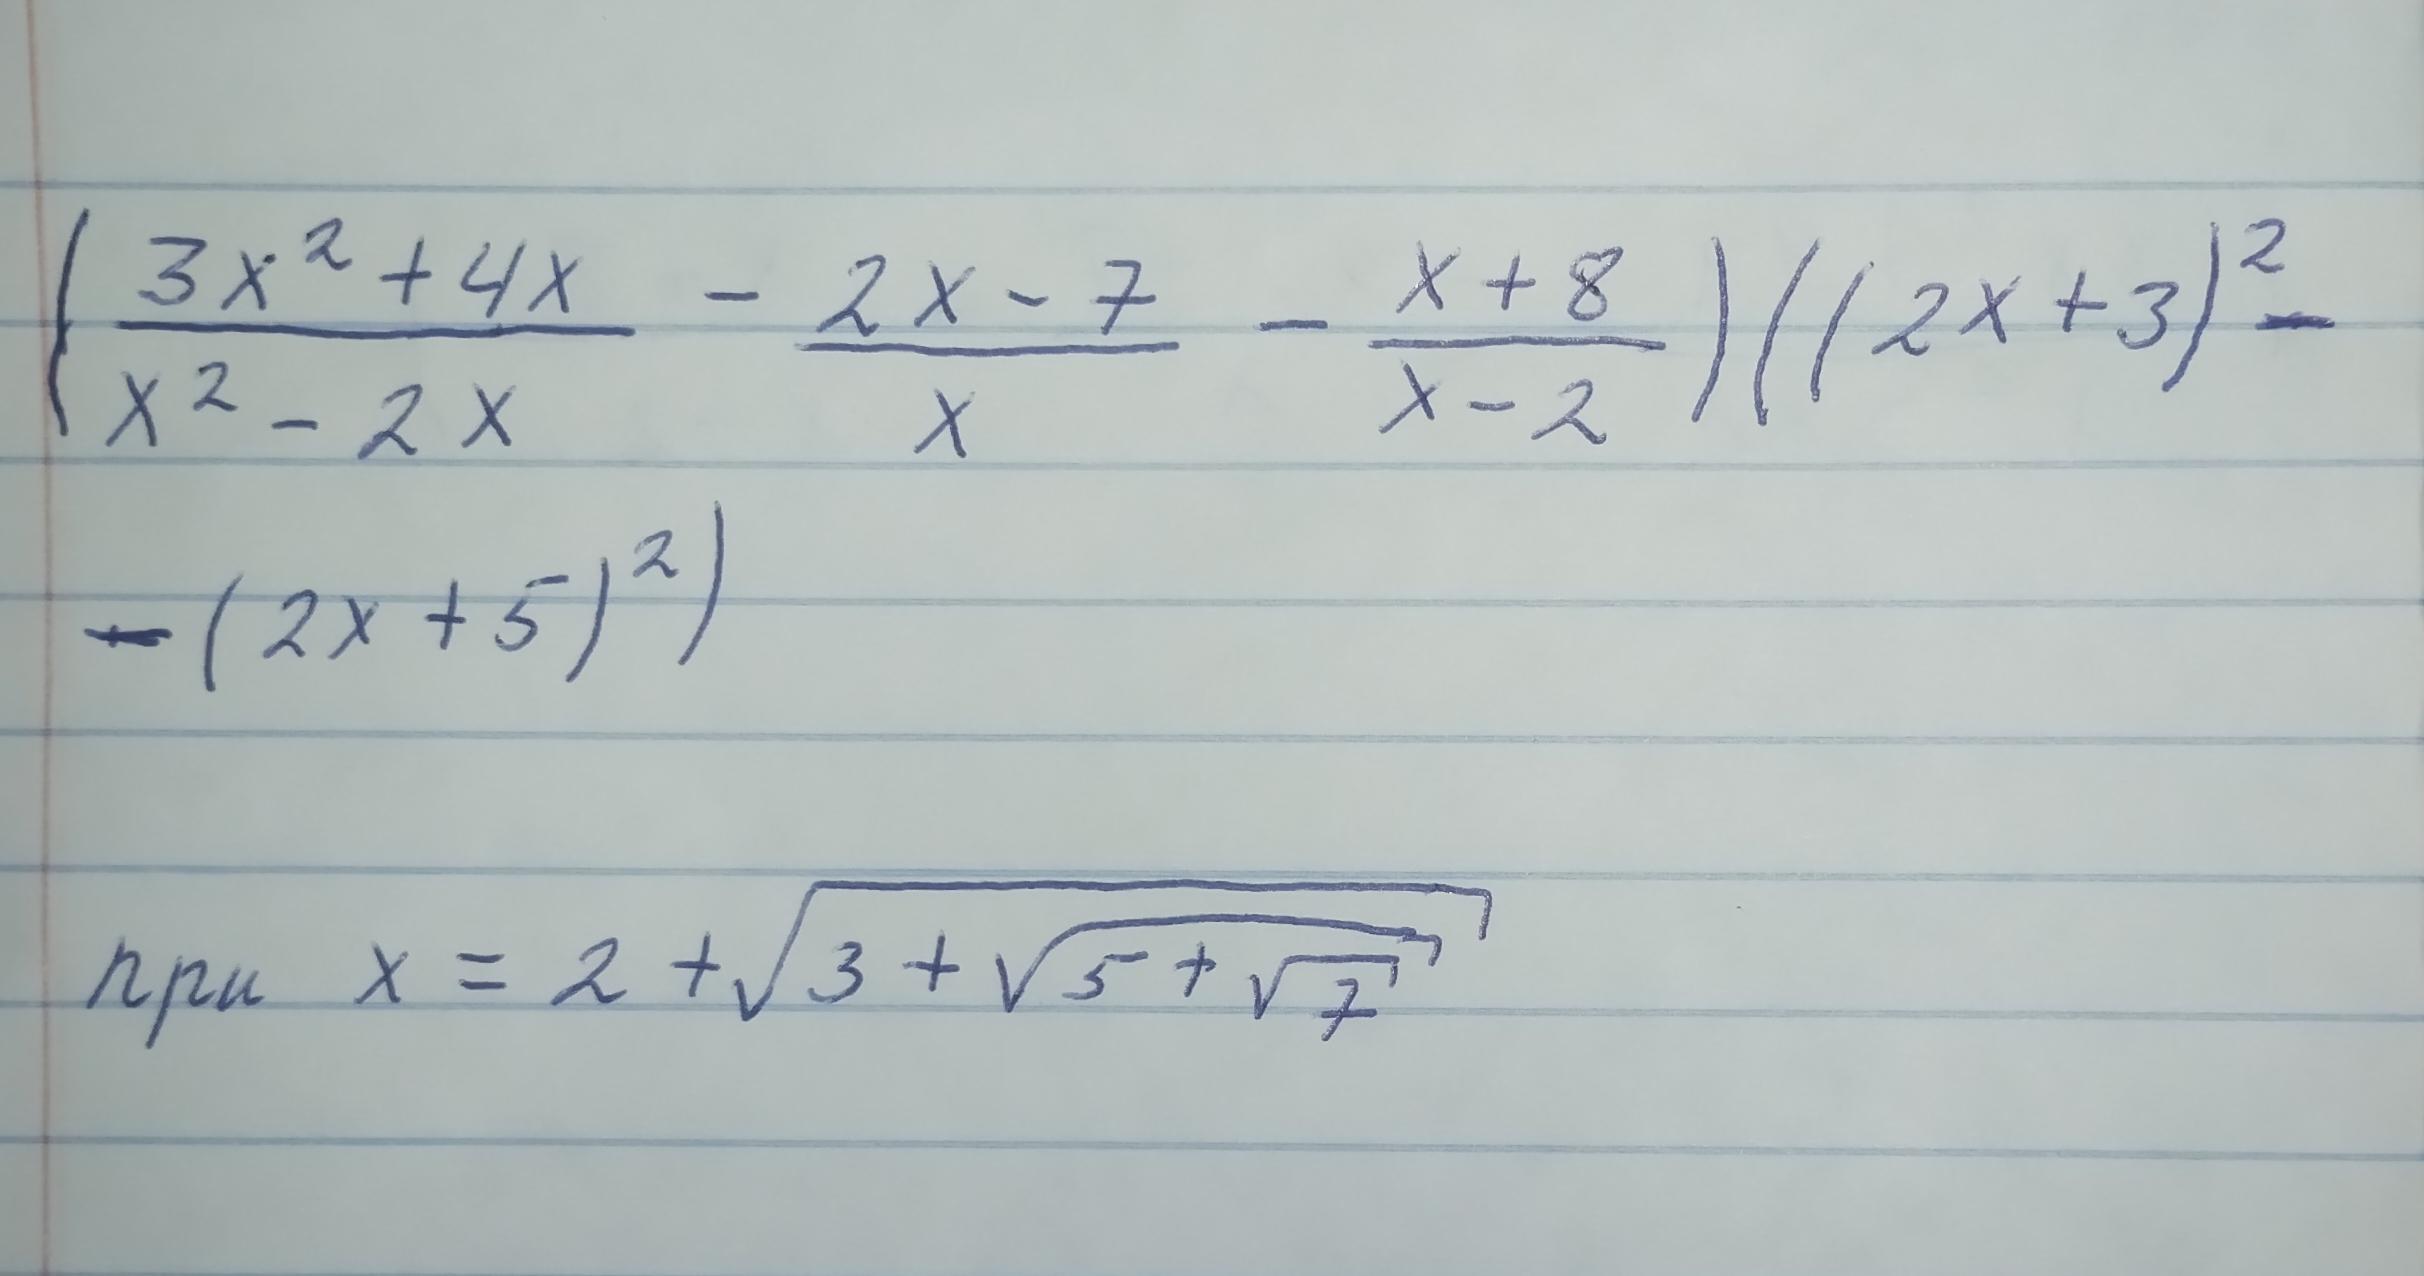 (\frac{3x^2+4x}{x^2-2x} - \frac{2x-7}{x} - \frac{x+8}{x-2})((2x+3)^2-
-(2x+5)^2)
при x = 2+\sqrt{3+\sqrt{5+\sqrt{7}}}